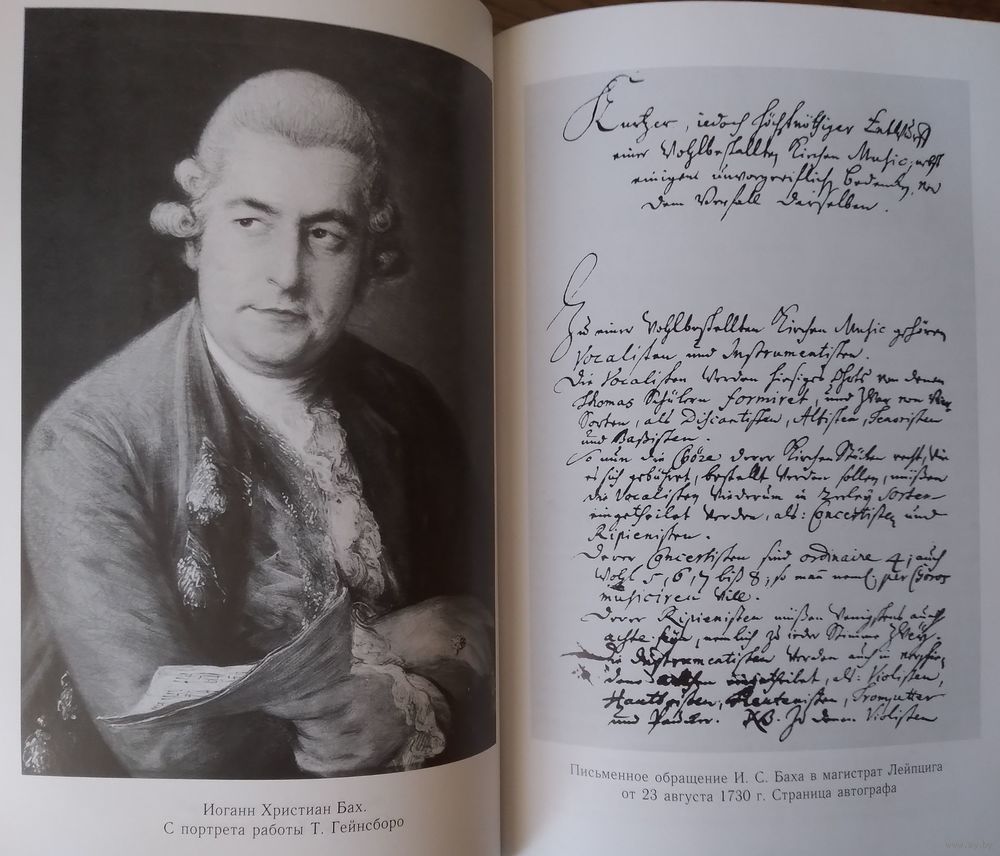 Иоганн Христиан Бах.
С портрета работы Т. Гейнсборо
Kurtzer, iedoch höchstnöthiger Entwurff
einer Wohlbestallten Kirchen Music, nebst
einigem unvorgreiflich Bedencken von
dem Verfall derselben.
Zu einer Wohlbestellten Kirchen Music gehören
Vocalisten und Instrumentisten.
Die Vocalisten werden hiesiges Ohrts von denen
Thomas Schülern formiret, und zwar von vier
Sorten, als Discantisten, Altisten, Tenoristen
und Bassisten.
So nun die Chöre derer Kirchen Stücken recht, wie
es sich gebühret, bestellt werden sollen, müßen
die Vocalisten wiederum in 2erley Sorten
eingetheilet werden, als: Concertisten und
Ripienisten.
Derer Concertisten sind ordinaire 4; auch
wohl 5, 6, 7 biß 8; so mann neml. per Choros
musiciren will.
Derer Ripienisten müßen wenigstens auch
achte seyn, nemlich zu ieder Stimme zwey.
Die Instrumentisten werden auch in verschie-
dene eingetheilet, als: Violisten,
Hautboisten, Fleutenisten, Trompetter
und Paucker. NB. Zu denen Violisten
Письменное обращение И. С. Баха в магистрат Лейпцига
от 23 августа 1730 г. Страница автографа
www.ay.by